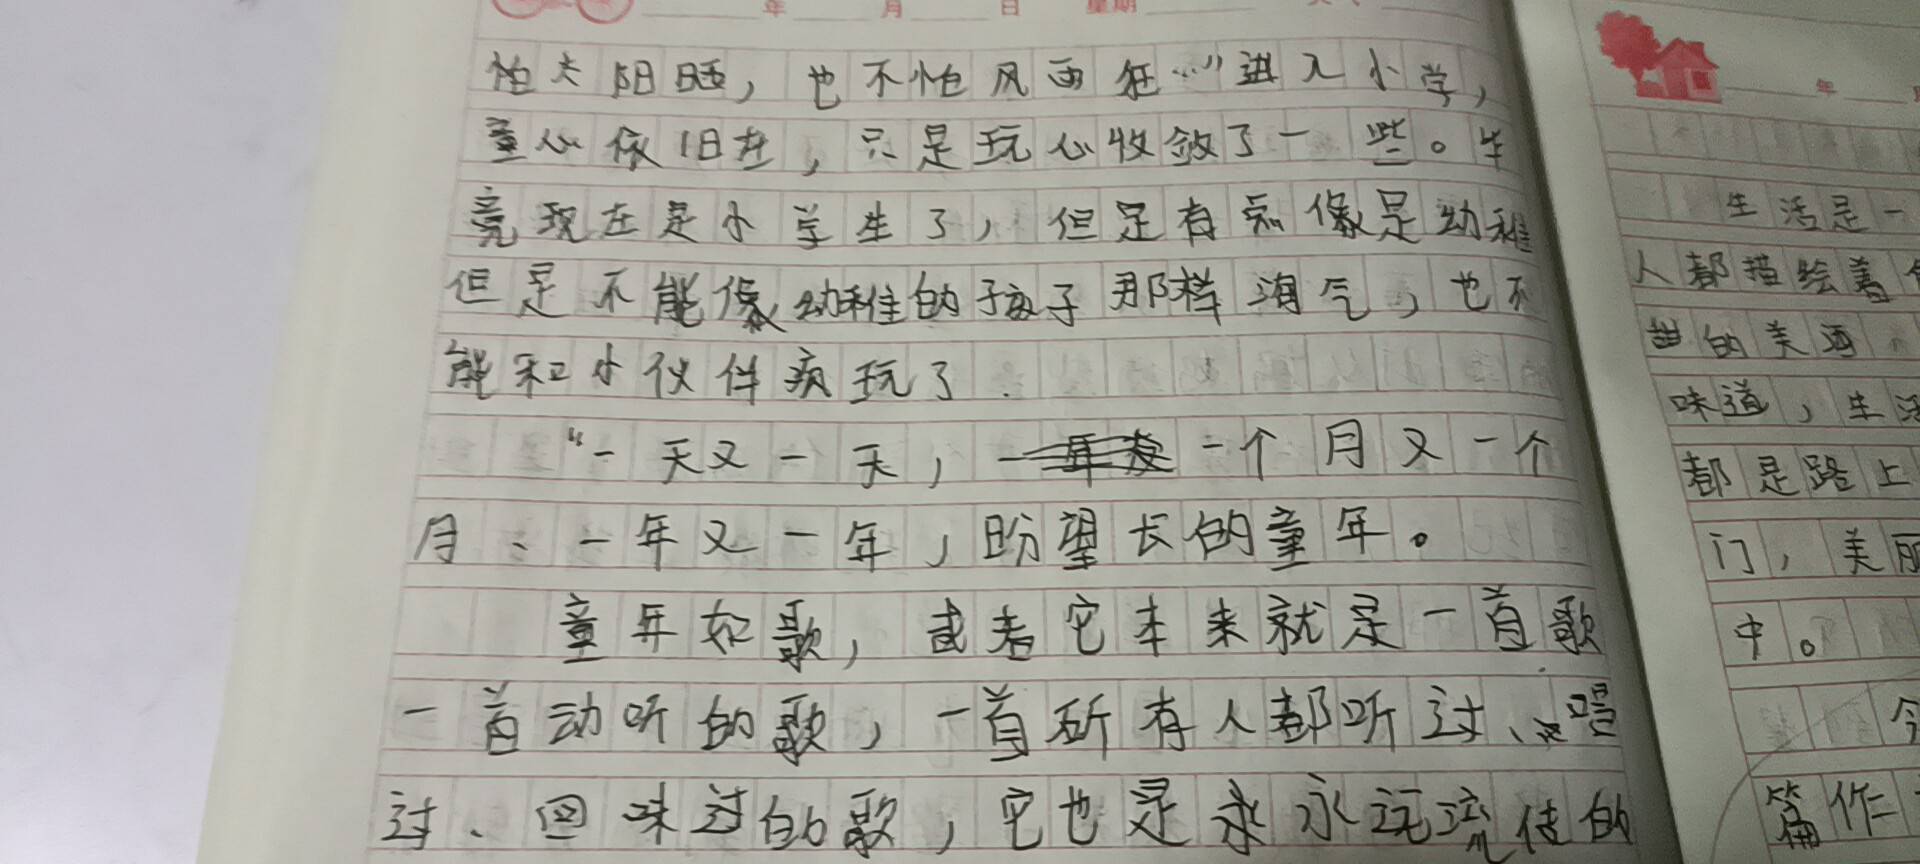 年 月 日 星期
怕太阳晒，也不怕风雨狂…”进入小学，
童心依旧在，只是玩心收敛了一些。毕
竟现在是小学生了，但是有 像是幼稚
但是不能像幼稚的孩子那样淘气，也不
能和小伙伴疯玩了.
“一天又一天， 一个月又一个
月、一年又一年，盼望长的童年。
童年如歌，或者它本来就是一首歌
一首动听的歌，一首所有人都听过、唱
过、回味过的歌，它也是永永远流传的
年
生活是一
人都描绘着
甜的美酒
味道，生活
都是路上
门，美丽
中。
今
篇作